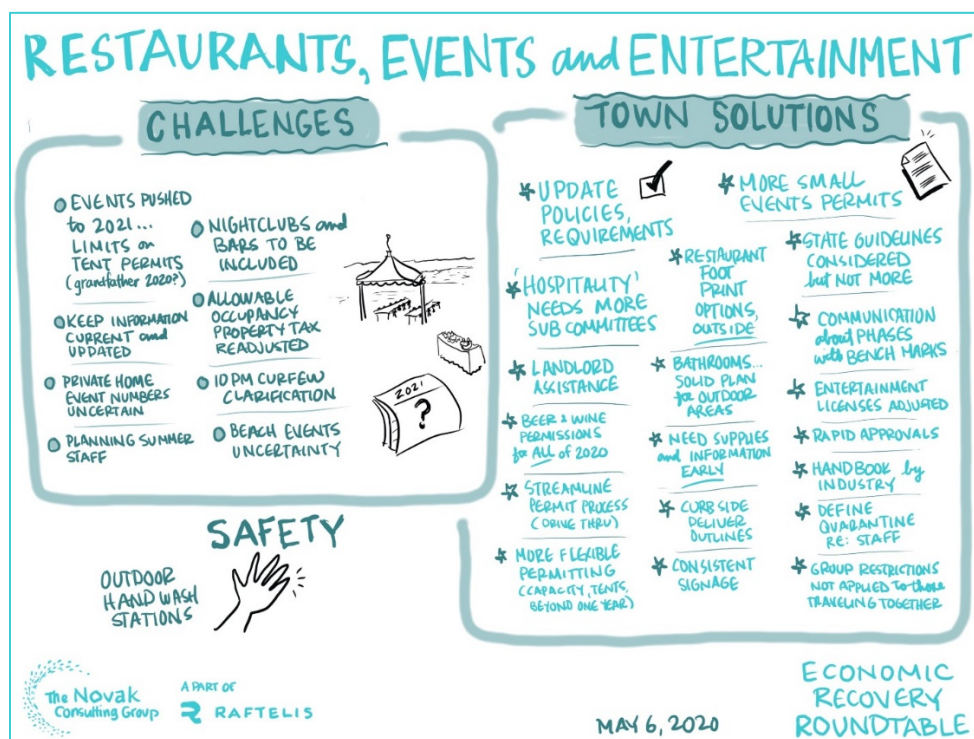 RESTAURANTS, EVENTS and ENTERTAINMENT
CHALLENGES
EVENTS PUSHED
to 2021...
LIMITS on
TENT PERMITS
(grandfather 2020?)
KEEP INFORMATION
CURRENT and
UPDATED
PRIVATE HOME
EVENT NUMBERS
UNCERTAIN
PLANNING SUMMER
STAFF
NIGHTCLUBS and
BARS TO BE
INCLUDED
ALLOWABLE
OCCUPANCY
PROPERTY TAX
READJUSTED
10 PM CURFEW
CLARIFICATION
BEACH EVENTS
UNCERTAINTY
2021
?
SAFETY
OUTDOOR
HAND WASH
STATIONS
TOWN SOLUTIONS
UPDATE
POLICIES,
REQUIREMENTS
'HOSPITALITY'
NEEDS MORE
SUB COMMITTEES
LANDLORD
ASSISTANCE
BEER & WINE
PERMISSIONS
for ALL of 2020
STREAMLINE
PERMIT PROCESS
(DRIVE THRU)
MORE FLEXIBLE
PERMITTING
(CAPACITY, TENTS,
BEYOND ONE YEAR)
RESTAURANT
FOOT
PRINT
OPTIONS,
OUTSIDE
BATHROOMS...
SOLID PLAN
for OUTDOOR
AREAS
NEED SUPPLIES
and INFORMATION
EARLY
CURB SIDE
DELIVER
OUTLINES
CONSISTENT
SIGNAGE
MORE SMALL
EVENTS PERMITS
STATE GUIDELINES
CONSIDERED
but NOT MORE
COMMUNICATION
about PHASES
with BENCH MARKS
ENTERTAINMENT
LICENSES ADJUSTED
RAPID APPROVALS
HANDBOOK by
INDUSTRY
DEFINE
QUARANTINE
RE: STAFF
GROUP RESTRICTIONS
NOT APPLIED to those
TRAVELING TOGETHER
The Novak
Consulting Group
A PART OF
RAFTELIS
MAY 6, 2020
ECONOMIC
RECOVERY
ROUNDTABLE